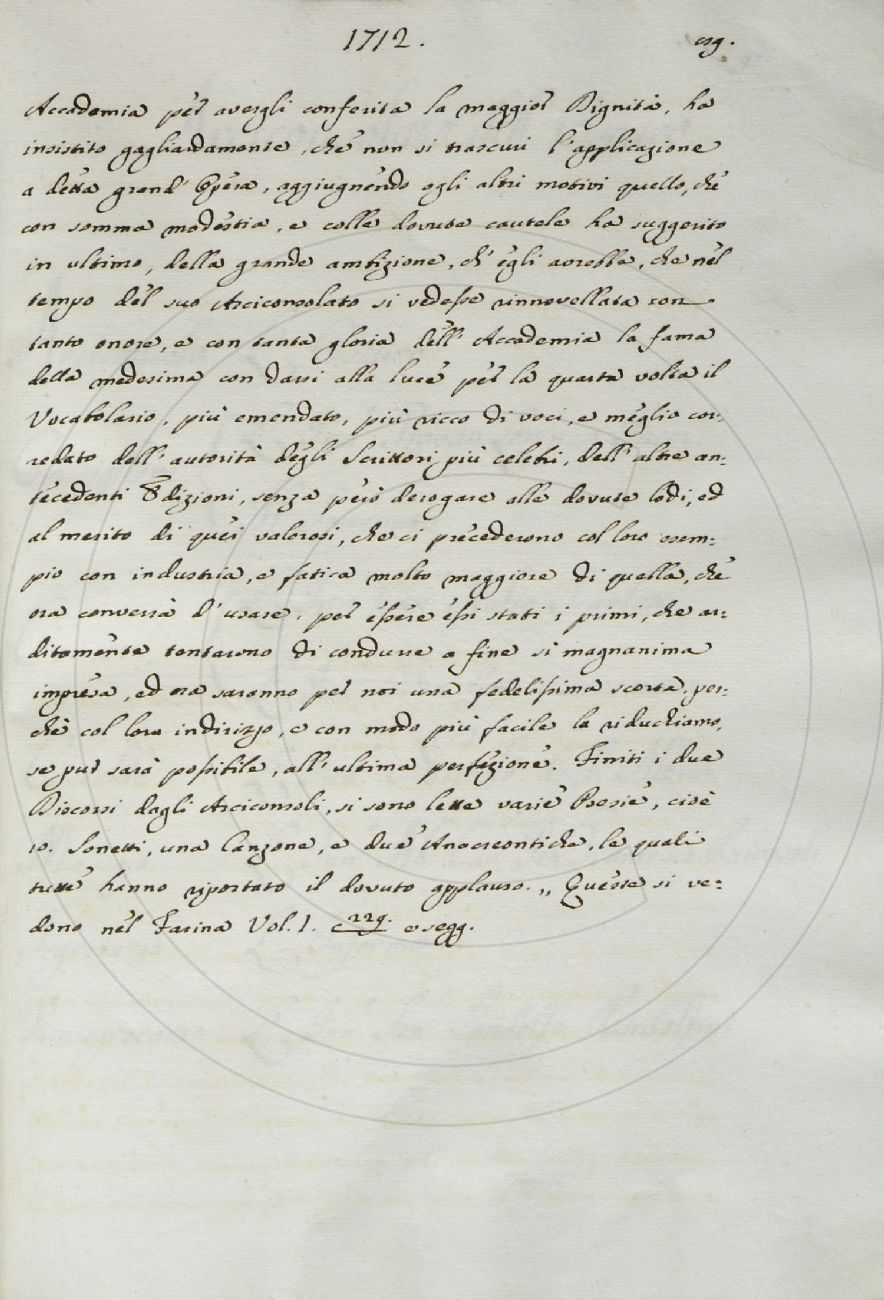 1712.
Accademia per avergli conferita la maggior Dignità, ha
insistito gagliardamente, che non si trascuri l'applicazione
a detta grand'Opera, aggiugnendo agli altri motivi quello, che
con somma modestia, e colle dovute cautele ha suggerito
in ultimo, della grande ambizione, ch'egli avrebbe, che nel
tempo del suo Arciconsolato si vedesse rinnovellata con
tanto onore, e con tanta gloria dell'Accademia la fama
della medesima con darsi alla luce per la quarta volta il
Vocabolario, più emendato, più ricco di voci, e meglio cor=
redato dell'autorità degli Scrittori più celebri, dell'altre an=
tecedenti Edizioni, senza però derogare alle dovute lodi, ed
al merito di quei valorosi, che ci precederono col loro esem=
pio con industria, e fatica molto maggiore di quella, che
ora converrà d'usare, per essere essi stati i primi, che ar=
ditamente tentarono di condurre a fine sì magnanima
impresa, ed ora saranno per noi una fedelissima scorta, per=
chè col loro indirizzo, e con modo più facile la riduchiamo,
se pur sarà possibile, all'ultima perfezione. Finiti i due
Discorsi dagli Arciconsoli, si sono lette varie Poesie, cioè
10. Sonetti, una Canzone, e due Anacreontiche, le quali
tutte hanno riportato il dovuto applauso. „ Queste si ve=
dono nel Farina Vol. I. c 229. e segg.